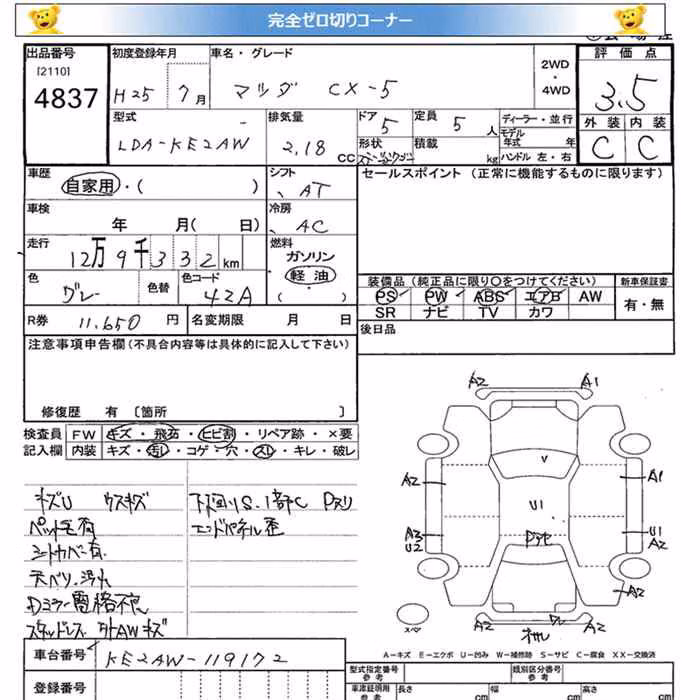 完全ゼロ切りコーナー
出品番号 初度登録年月 車名・グレード 評価点
[2110] 2WD
4837 H25 7月 マツダ CX-5 ・ 3.5
4WD
型式 排気量 ドア 定員 ディーラー・並行 外装 内装
LDA-KE2AW 2.18 CC 5 5 人 モデル年式 年 C C
形状 積載 kg ハンドル 左・右
車歴 シフト セールスポイント (正常に機能するものに限ります)
自家用・( ) AT
車検 冷房
年 月( 日) AC
走行 燃料
12万9千332km ガソリン
軽油
色 色替 色コード ( )
グレー 42A
装備品 (純正品に限り○をつけてください) 新車保証書
PS PW ABS エアB AW 有・無
SR ナビ TV カワ
R券 11.650 円 名変期限 月 日
後日品
注意事項申告欄(不具合内容等は具体的に記入して下さい)
修復歴 有 [箇所 ]
検査員 FW キズ・飛石・ヒビ割・リペア跡・×要
記入欄 内装 キズ・汚れ・コゲ・穴・スレ・キレ・破レ
キズU ウスキズ 下廻りS.1部C Pスリ
ペット毛有 エンドパネル歪
シートカバー有
天ベリ.汚れ
Dミラー電格不良
スタッドレス 外AWキズ
A2 A1
V
A2 A1
U1
A3 U1
U2 A2
A2
A2 A2
スペア
A-キズ E-エクボ U-凹み W-補修跡 S-サビ C-腐食 XX-交換済
車台番号 KE2AW-119172
登録番号
型式指定番号 類別区分番号
参考 参考
車庫証明用 長さ 幅 高さ
参考 cm cm cm